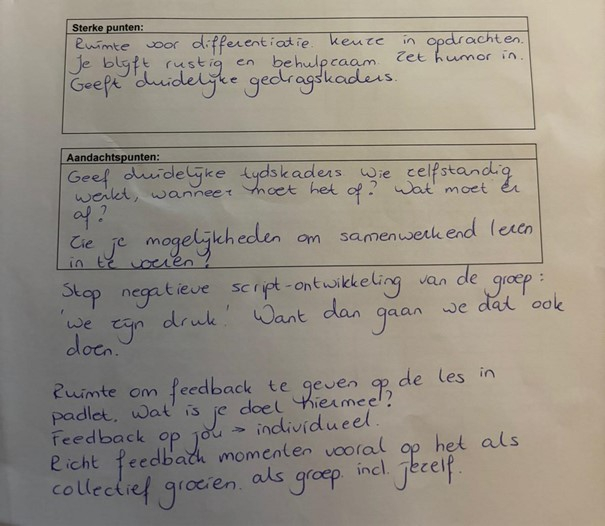 Sterke punten:
Ruimte voor differentiatie. keuze in opdrachten.
Je blijft rustig en behulpzaam. Zet humor in.
Geeft duidelijke gedragskaders.
Aandachtspunten:
Geef duidelijke tijdskaders wie zelfstandig
werkt, wanneer moet het af? Wat moet er
af?
Zie je mogelijkheden om samenwerkend leren
in te voeren?
Stop negatieve script-ontwikkeling van de groep:
'we zijn druk.' Want dan gaan we dat ook
doen.
Ruimte om feedback te geven op de les in
padlet. Wat is je doel hiermee?
Feedback op jou → individueel.
Richt feedback momenten vooral op het als
collectief groeien. als groep. incl. jezelf.